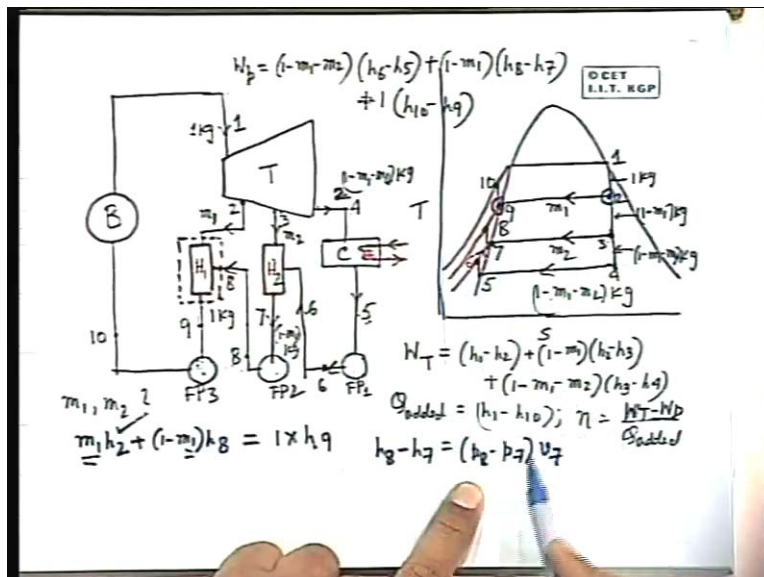 Wp = (1-m1-m2)(h6-h5) + (1-m1)(h8-h7)
+ 1(h10-h9)
© CET
I.I.T. KGP
1kg
1
T
2
3
m1
m2
(1-m1-m2)kg
4
B
H1
H2
C
8
9
1kg
7
(1-m1)kg
6
5
10
8
6
FP3
FP2
FP1
T
10
1
1kg
9
m1
2
(1-m1)kg
8
7
m2
3
(1-m1-m2)kg
6
5
4
(1-m1-m2)kg
S
WT = (h1-h2) + (1-m1)(h2-h3)
+ (1-m1-m2)(h3-h4)
Qadded = (h1-h10); η = WT-Wp / Qadded
m1, m2 ?
m1h2 + (1-m1)h8 = 1×h9
h8-h7 = (p8-p7)v7